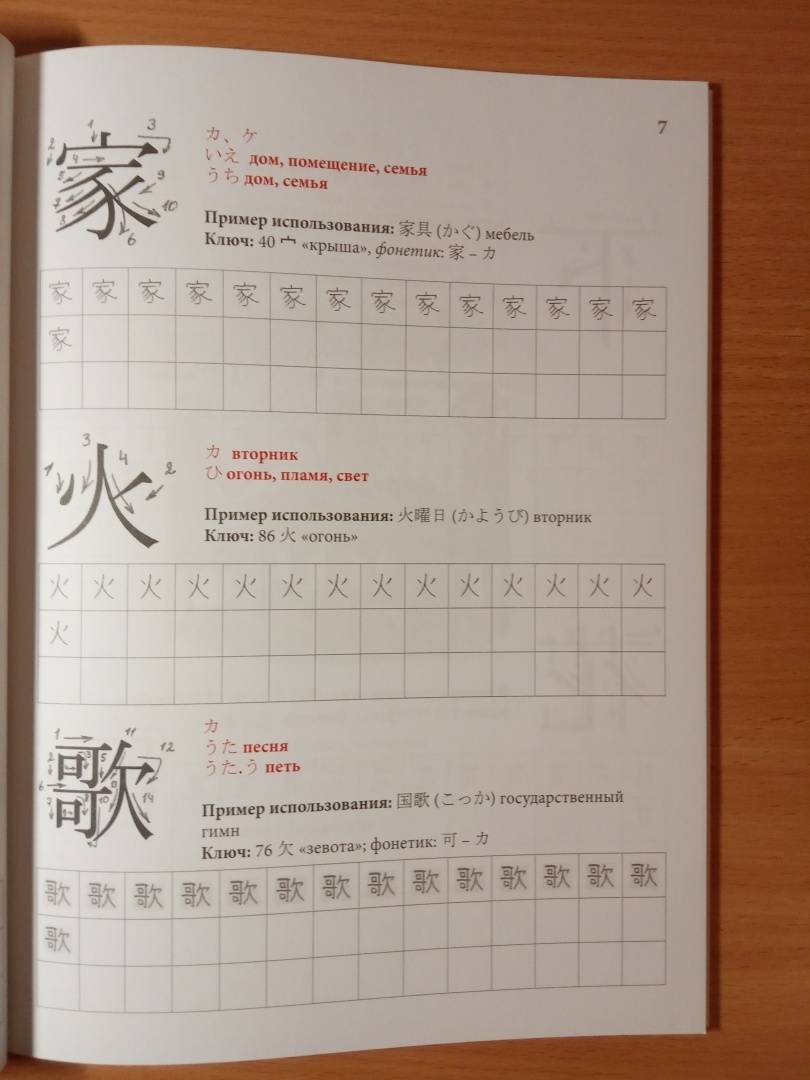 7
1 3
2
家
4
5 9
7 10
8
6
カ、ケ
いえ дом, помещение, семья
うち дом, семья
Пример использования: 家具 (かぐ) мебель
Ключ: 40 宀 «крыша», фонетик: 家 – カ
家 家 家 家 家 家 家 家 家 家 家 家 家 家
家
3
4
1 2
火
カ вторник
ひ огонь, пламя, свет
Пример использования: 火曜日 (かようび) вторник
Ключ: 86 火 «огонь»
火 火 火 火 火 火 火 火 火 火 火 火 火 火
火
1 11
12
2 3 5
歌
6
7 10 14
カ
うた песня
うた.う петь
Пример использования: 国歌 (こっか) государственный
гимн
Ключ: 76 欠 «зевота»; фонетик: 可 – カ
歌 歌 歌 歌 歌 歌 歌 歌 歌 歌 歌 歌 歌 歌
歌